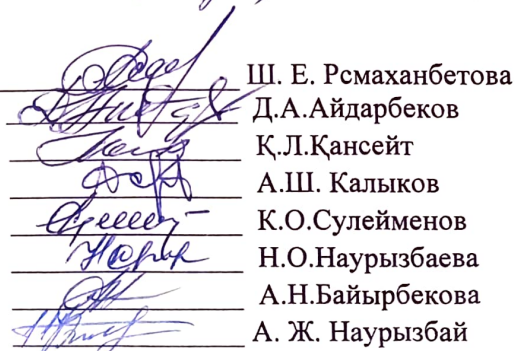 Ш. Е. Рсмаханбетова
Д.А.Айдарбеков
Қ.Л.Қансейт
А.Ш. Калыков
К.О.Сулейменов
Н.О.Наурызбаева
А.Н.Байырбекова
А. Ж. Наурызбай